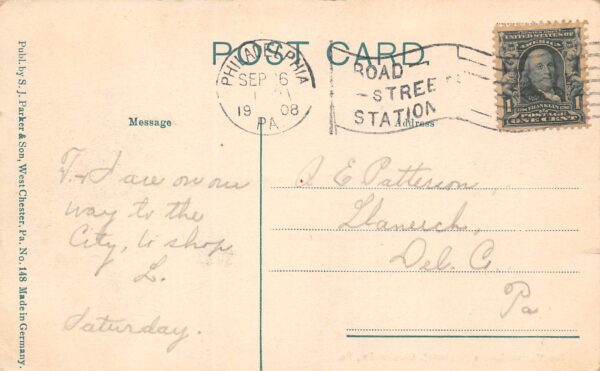 POST CARD
PHILADELPHIA
SEP 6
1908
PA.
ROAD
STREE
STATION
UNITED STATES OF
AMERICA
1 FRANKLIN 1
POSTAGE
ONE CENT
Message
Address
T. & I are on our
way to the
City, to shop
L.
Saturday.
E Patterson,
Llanerch,
Del. C.
Pa
Publ. by S. J. Parker & Son, West Chester, Pa. No. 148 Made in Germany.